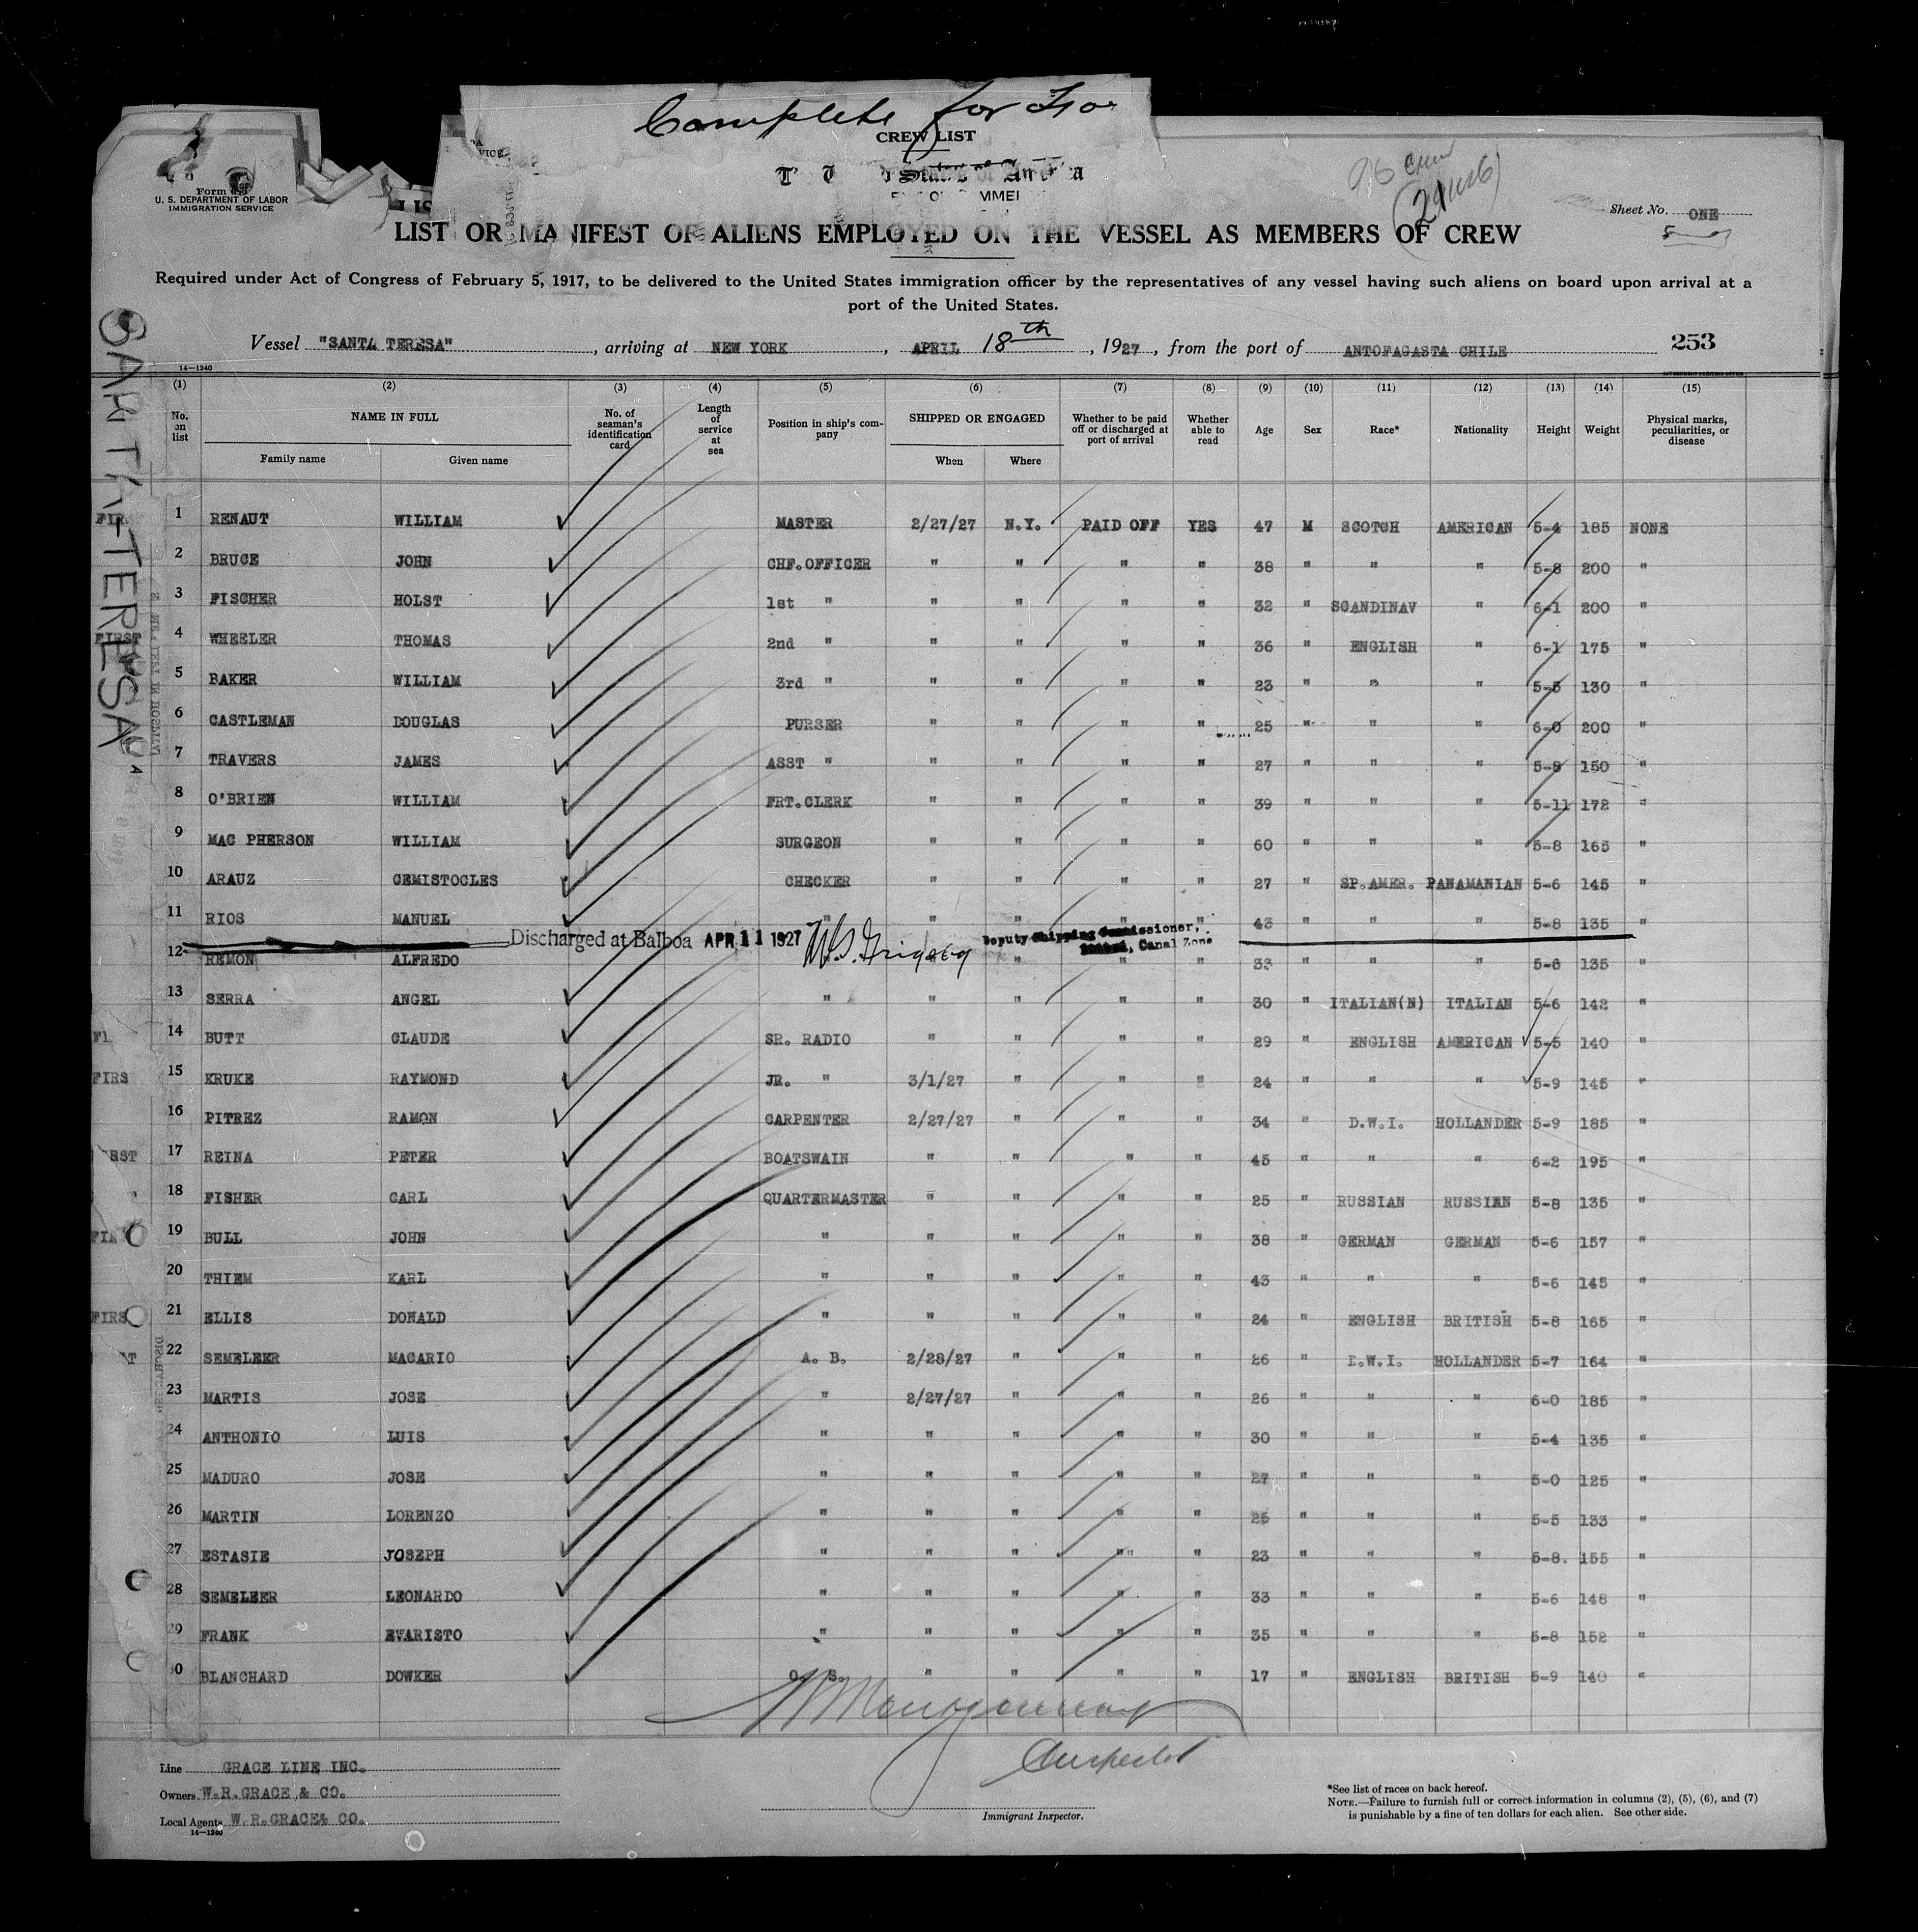 Complete for
CREW LIST
Form 689
U. S. DEPARTMENT OF LABOR
IMMIGRATION SERVICE
Sheet No. ONE
5
LIST OR MANIFEST OF ALIENS EMPLOYED ON THE VESSEL AS MEMBERS OF CREW
Required under Act of Congress of February 5, 1917, to be delivered to the United States immigration officer by the representatives of any vessel having such aliens on board upon arrival at a
port of the United States.
Vessel "SANTA TERESA", arriving at NEW YORK, APRIL 18th, 1927, from the port of ANTOFAGASTA CHILE 253
14—1240
SANTA-TERESA
(1) (2) (3) (4) (5) (6) (7) (8) (9) (10) (11) (12) (13) (14) (15)
No. on list NAME IN FULL No. of seaman's identification card Length of service at sea Position in ship's company SHIPPED OR ENGAGED Whether to be paid off or discharged at port of arrival Whether able to read Age Sex Race* Nationality Height Weight Physical marks, peculiarities, or disease
Family name Given name When Where
1 RENAUT WILLIAM MASTER 2/27/27 N.Y. PAID OFF YES 47 M SCOTCH AMERICAN 5-4 185 NONE
2 BRUCE JOHN CHF.OFFICER " " " " 38 " " " 5-8 200 "
3 FISCHER HOLST 1st " " " " " 32 " SCANDINAV " 6-1 200 "
4 WHEELER THOMAS 2nd " " " " " 36 " ENGLISH " 6-1 175 "
5 BAKER WILLIAM 3rd " " " " " 23 " " " 5-5 130 "
6 CASTLEMAN DOUGLAS PURSER " " " " 25 " " " 6-0 200 "
7 TRAVERS JAMES ASST " " " " " 27 " " " 5-9 150 "
8 O'BRIEN WILLIAM FRT.CLERK " " " " 39 " " " 5-11 172 "
9 MAC PHERSON WILLIAM SURGEON " " " " 60 " " " 5-8 165 "
10 ARAUZ GEMISTOCLES CHECKER " " " " 27 " SP.AMER. PANAMANIAN 5-6 145 "
11 RIOS MANUEL " " " " " 43 " " " 5-8 135 "
Discharged at Balboa APR 11 1927 Deputy Shipping Commissioner,
Canal Zone
12 REMON ALFREDO " " " " 33 " " " 5-6 135 "
13 SERRA ANGEL " " " " " 30 " ITALIAN(N) ITALIAN 5-6 142 "
14 BUTT CLAUDE SR. RADIO " " " " 29 " ENGLISH AMERICAN 5-5 140 "
15 KRUKE RAYMOND JR. " 3/1/27 " " " 24 " " " 5-9 145 "
16 PITREZ RAMON CARPENTER 2/27/27 " " " 34 " D.W.I. HOLLANDER 5-9 185 "
17 REINA PETER BOATSWAIN " " " " 45 " " " 6-2 195 "
18 FISHER CARL QUARTERMASTER " " " " 25 " RUSSIAN RUSSIAN 5-8 135 "
19 BULL JOHN " " " " " 38 " GERMAN GERMAN 5-6 157 "
20 THIEM KARL " " " " " 43 " " " 5-6 145 "
21 ELLIS DONALD " " " " " 24 " ENGLISH BRITISH 5-8 165 "
22 SEMELEER MACARIO A. B. 2/28/27 " " " 26 " D.W.I. HOLLANDER 5-7 164 "
23 MARTIS JOSE " 2/27/27 " " " 26 " " " 6-0 185 "
24 ANTHONIO LUIS " " " " " 30 " " " 5-4 135 "
25 MADURO JOSE " " " " " 27 " " " 5-0 125 "
26 MARTIN LORENZO " " " " " 25 " " " 5-5 133 "
27 ESTASIE JOSEPH " " " " " 23 " " " 5-8. 155 "
28 SEMELEER LEONARDO " " " " " 33 " " " 5-6 148 "
29 FRANK EVARISTO " " " " " 35 " " " 5-8 152 "
30 BLANCHARD DOWKER O. S. " " " " 17 " ENGLISH BRITISH 5-9 140 "
Line GRACE LINE INC.
Owners W.R.GRACE & CO.
Local Agents W.R.GRACE& CO.
14—1240
Immigrant Inspector.
*See list of races on back hereof.
NOTE.—Failure to furnish full or correct information in columns (2), (5), (6), and (7)
is punishable by a fine of ten dollars for each alien. See other side.